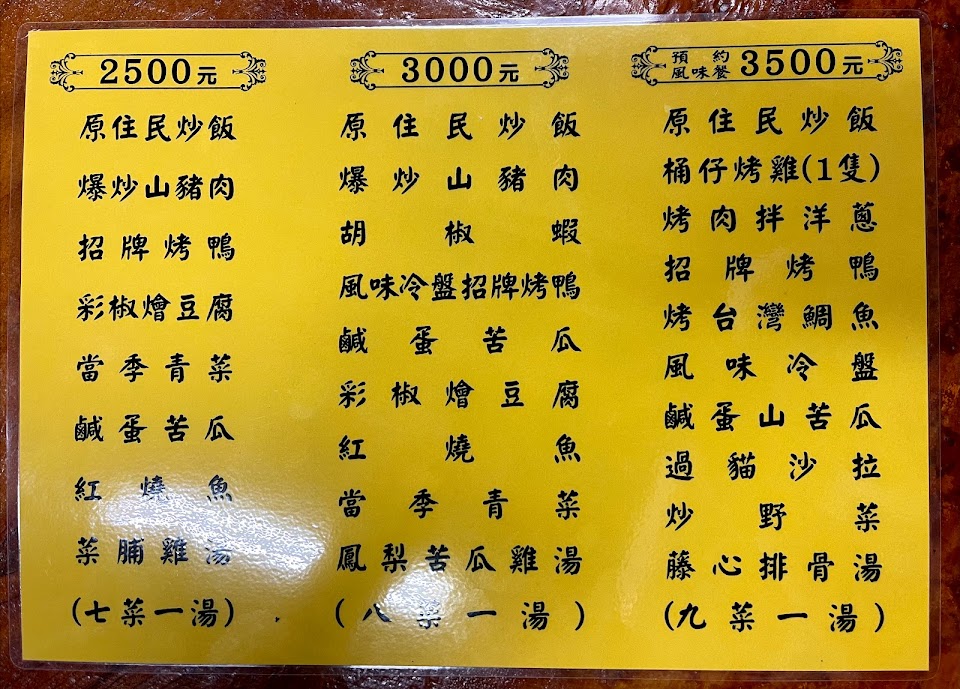 2500元
原住民炒飯
爆炒山豬肉
招牌烤鴨
彩椒燴豆腐
當季青菜
鹹蛋苦瓜
紅燒魚
菜脯雞湯
(七菜一湯)
3000元
原住民炒飯
爆炒山豬肉
胡椒蝦
風味冷盤招牌烤鴨
鹹蛋苦瓜
彩椒燴豆腐
紅燒魚
當季青菜
鳳梨苦瓜雞湯
(八菜一湯)
預約
風味餐 3500元
原住民炒飯
桶仔烤雞(1隻)
烤肉拌洋蔥
招牌烤鴨
烤台灣鯛魚
風味冷盤
鹹蛋山苦瓜
過貓沙拉
炒野菜
藤心排骨湯
(九菜一湯)